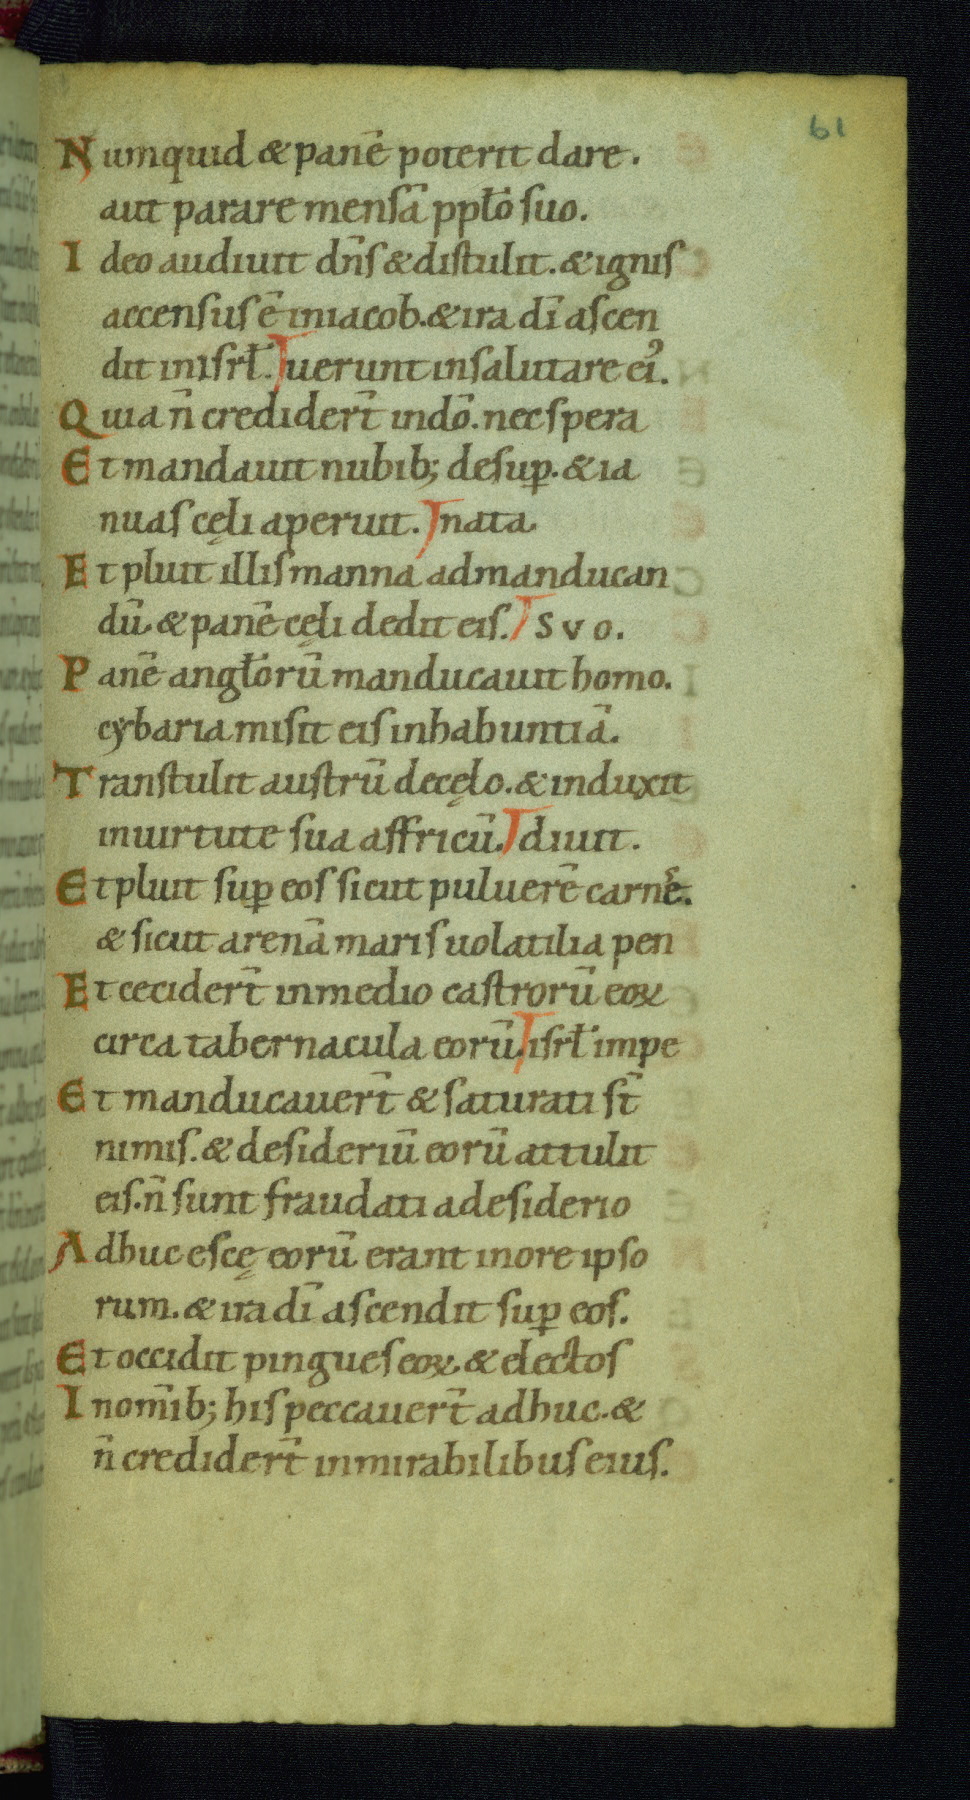 61
Numquid & panē poterit dare.
aut parare mensā ppło suo.
Ideo audiuit dn̄s & distulit. & ignis
accensus ē iniacob. & ira dī ascen
dit inisrł. uerunt insalutare eiꝰ.
Quia n̄ credider̄t indō. nec spera
Et mandauit nubib; desuꝑ. & ia
nuas cęli aperuit. nata
Et pluit illis manna admanducan
dū. & panē cęli dedit eis. SVO.
Panē angłorū manducauit homo.
cẏbaria misit eis inhabuntiā.
Transtulit austrū decęlo. & induxit
inuirtute sua affricū. diuit.
Et pluit suꝑ eos sicut puluerē carnē.
& sicut arenā maris uolatilia pen
Et cecider̄t inmedio castrorū eoꝝ
circa tabernacula eorū. isrł impe
Et manducauer̄t & saturati st̄
nimis. & desideriū eorū attulit
eis. n̄ sunt fraudati adesiderio
Adhuc escę eorū erant inore ipso
rum. & ira dī ascendit suꝑ eos.
Et occidit pingues eoꝝ. & electos
Inom̄ib; his peccauer̄t adhuc. &
n̄ credider̄t inmirabilibus eius.